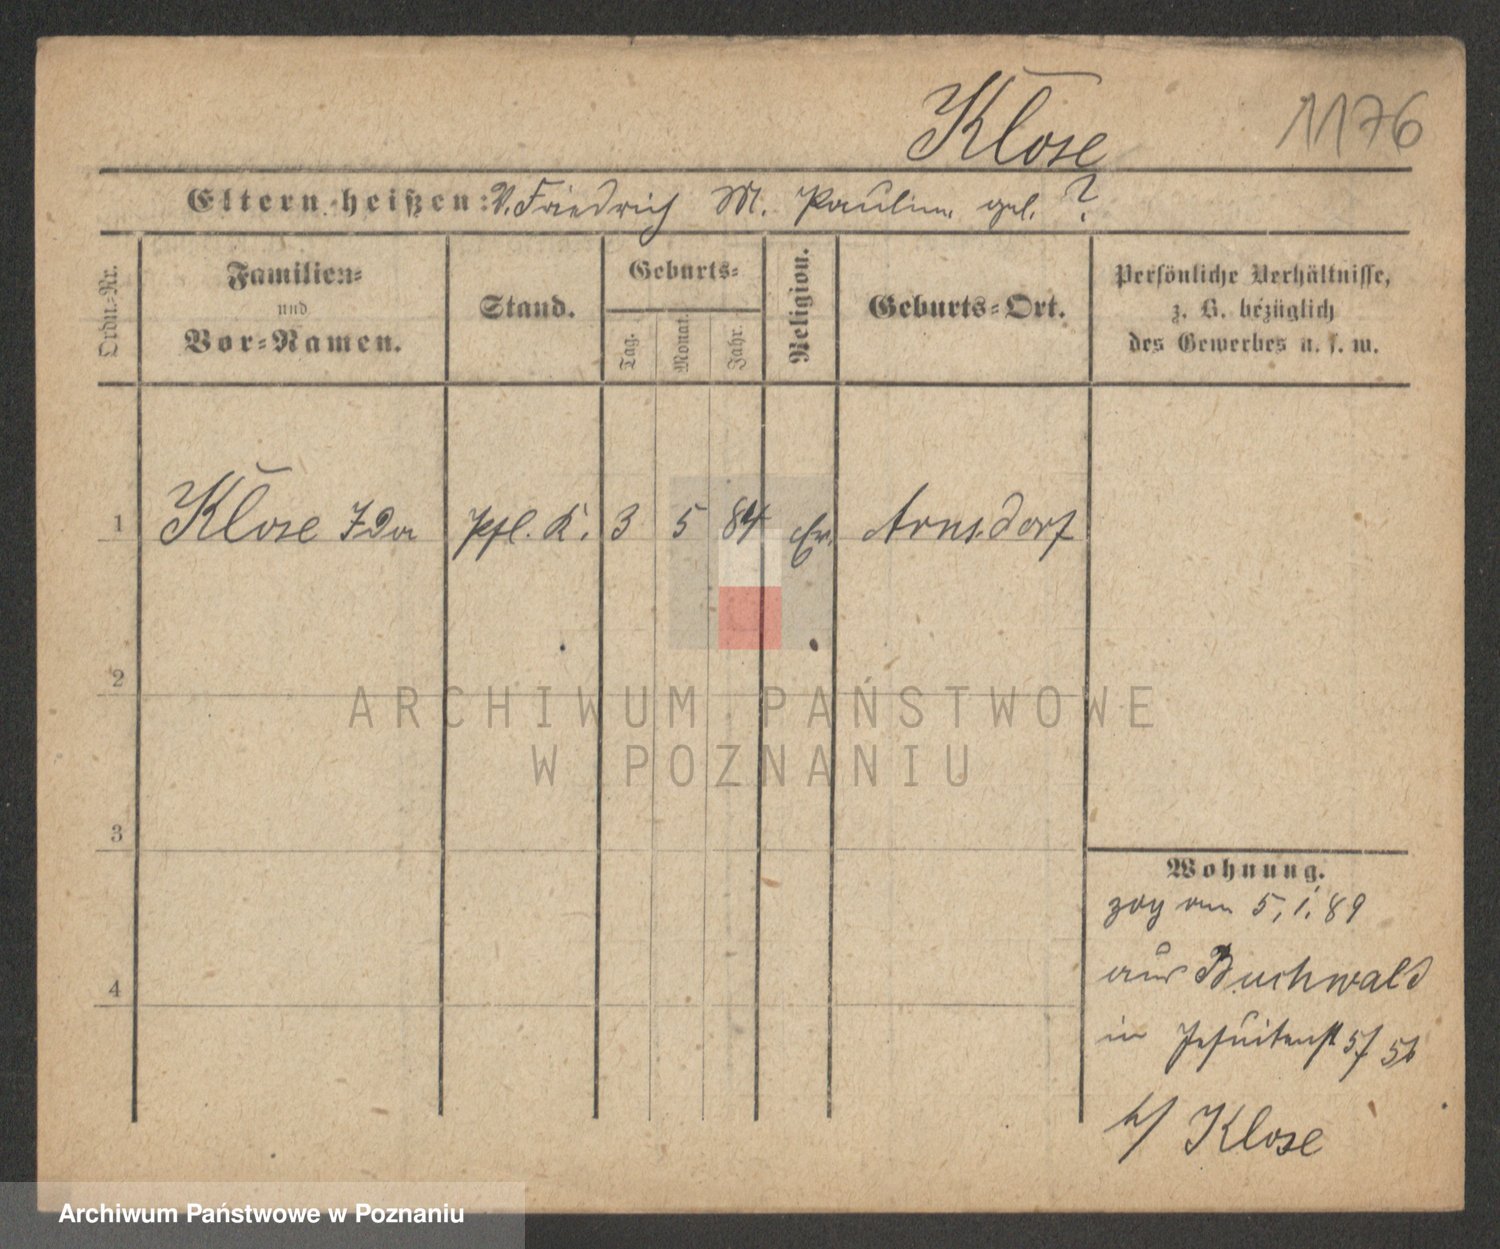 Klose 1176
Eltern heißen: V. Friedrich M. Pauline gel. ?
Ordn.-Nr.
Familien-
und
Vor-Namen.
Stand.
Geburts-
Tag.
Monat.
Jahr.
Religion.
Geburts-Ort.
Persönliche Verhältnisse,
z. B. bezüglich
des Gewerbes u. s. w.
1 Klose Ida Pfl. K. 3 5 84 Ev. Arnsdorf
2
3
4
ARCHIWUM PAŃSTWOWE
W POZNANIU
Wohnung.
zog am 5, 1. 89
aus Buchwald
in Jesuitenst
b/ Klose
Archiwum Państwowe w Poznaniu